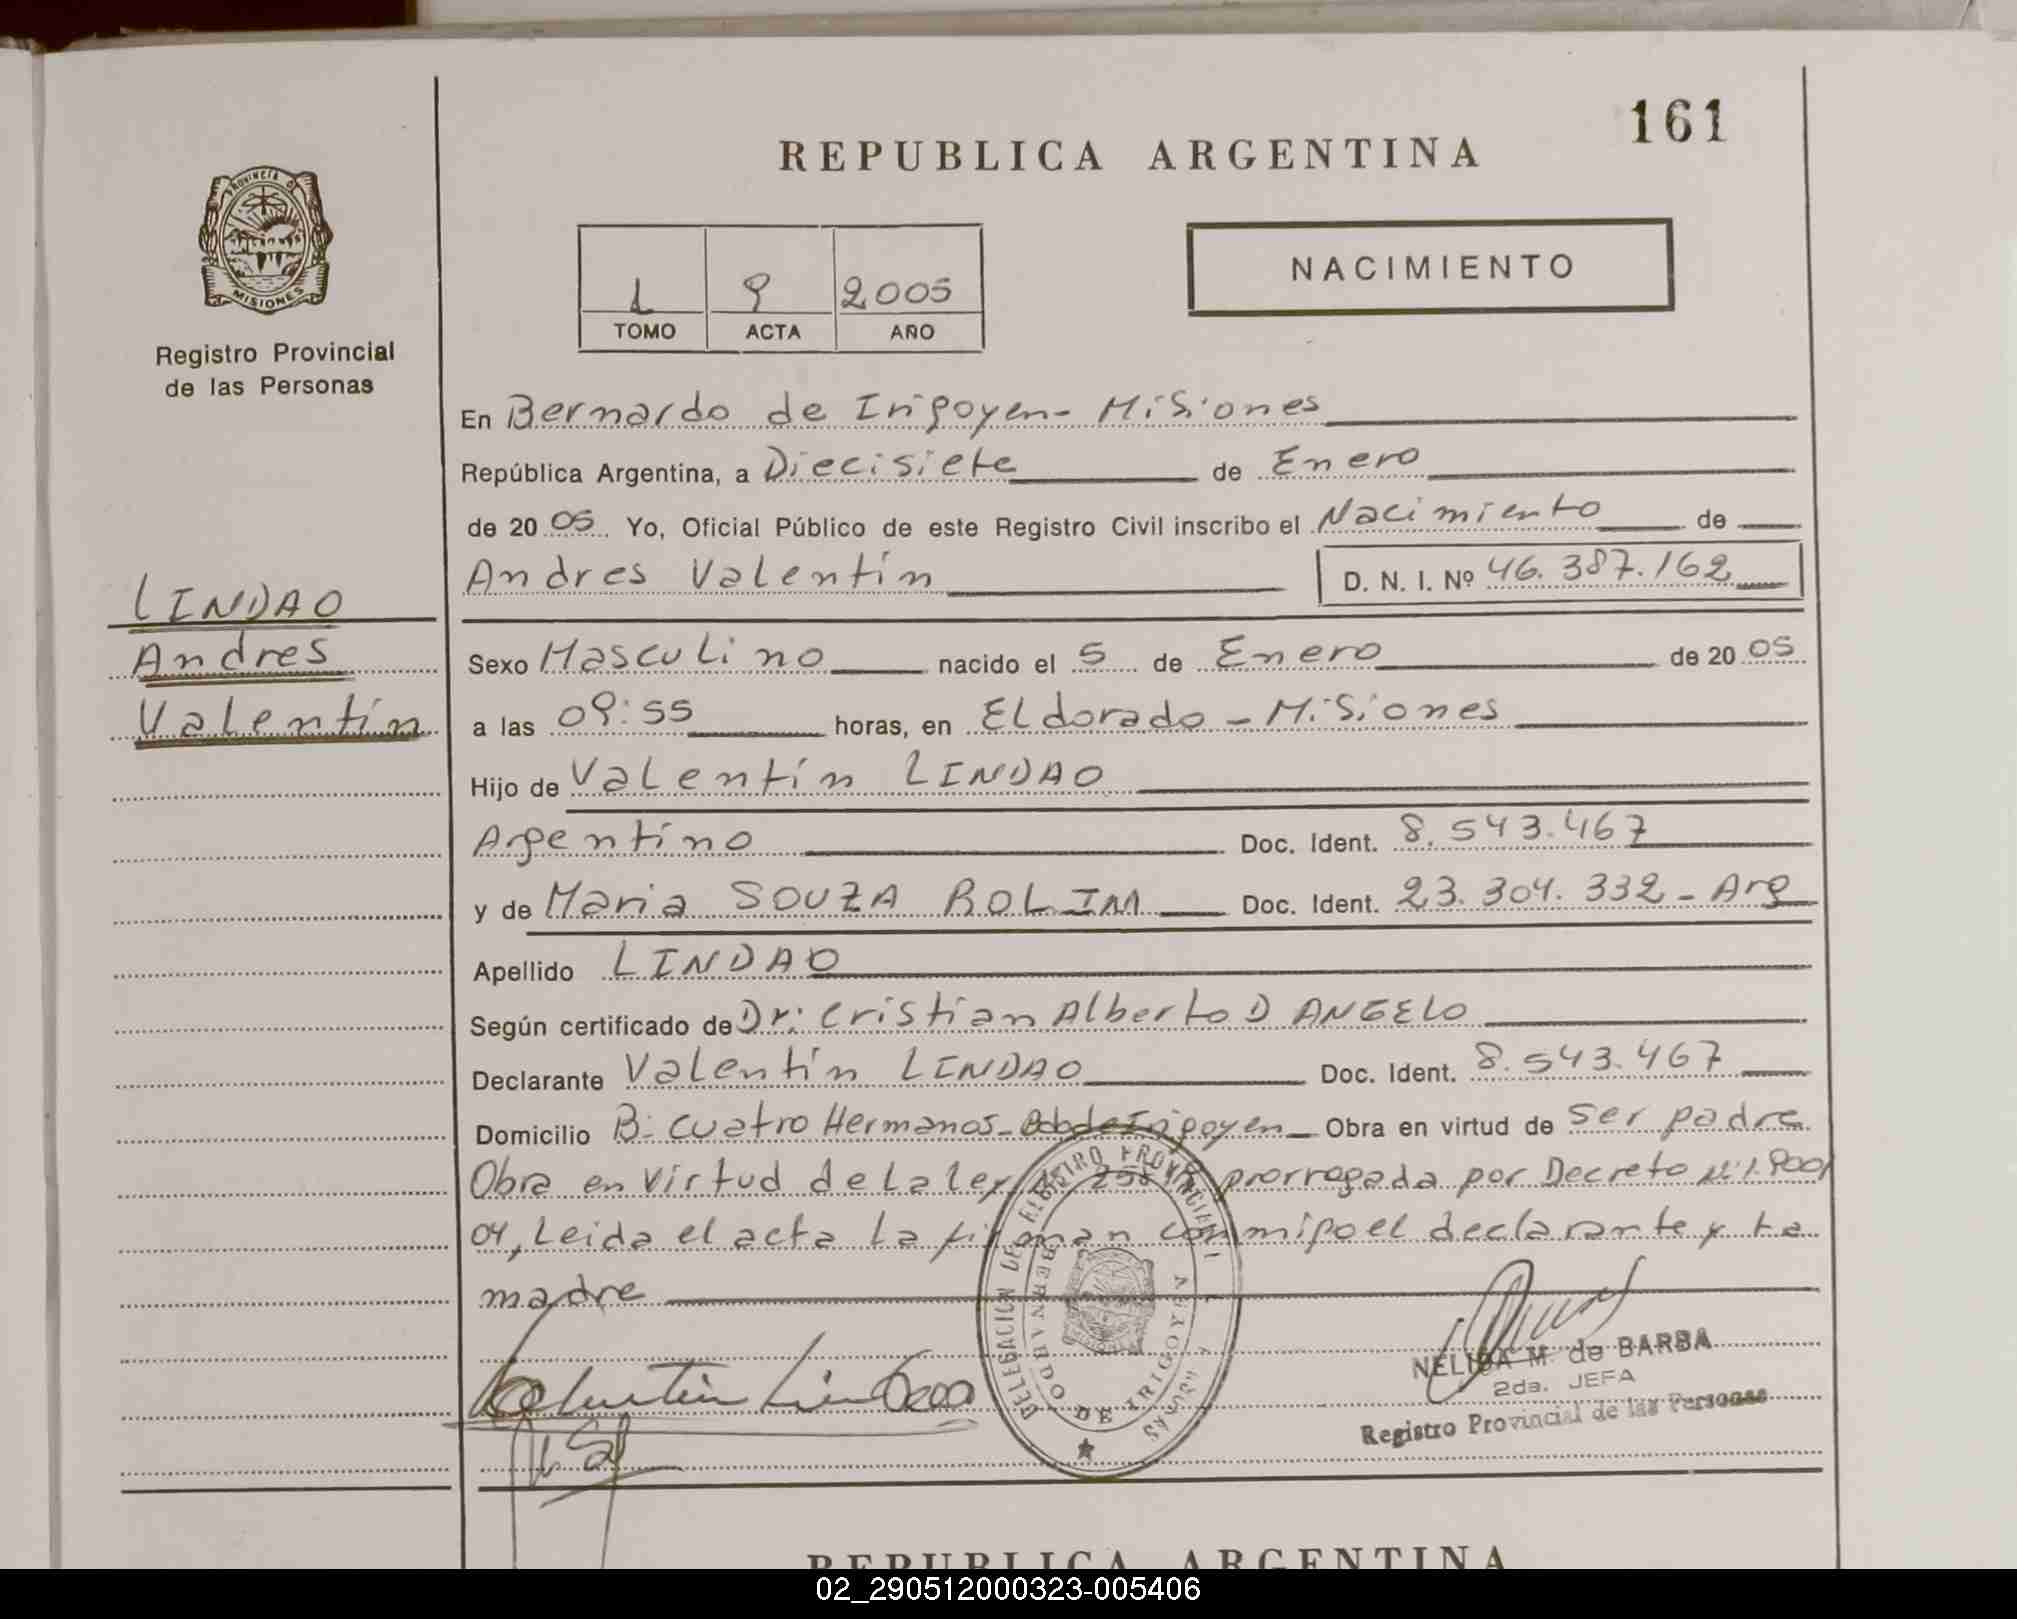 161
REPUBLICA ARGENTINA
PROVINCIA DE
MISIONES
Registro Provincial
de las Personas
1 9 2005
TOMO ACTA AÑO
NACIMIENTO
En Bernardo de Irigoyen - Misiones
República Argentina, a Diecisiete de Enero
de 2005 Yo, Oficial Público de este Registro Civil inscribo el Nacimiento de
Andres Valentín D. N. I. Nº 46.387.162
LINDAO
Andres
Valentín
Sexo Masculino nacido el 5 de Enero de 2005
a las 09:55 horas, en Eldorado - Misiones
Hijo de Valentín LINDAO
Argentino Doc. Ident. 8.543.467
y de Maria SOUZA ROLIM Doc. Ident. 23.304.332 - Arg
Apellido LINDAO
Según certificado de Dr: Cristian Alberto D ANGELO
Declarante Valentín LINDAO Doc. Ident. 8.543.467
Domicilio B: Cuatro Hermanos - Bdo de Irigoyen Obra en virtud de ser padre
Obra en virtud de la ley prorrogada por Decreto Nº 1.900/
04, Leida el acta la firman conmigo el declarante y la
madre
DELEGACION DEL REGISTRO PROVINCIAL
BERNARDO DE IRIGOYEN
Valentin Lindao
NELIDA M. de BARBA
2da. JEFA
Registro Provincial de las Personas
REPUBLICA ARGENTINA
02_290512000323-005406